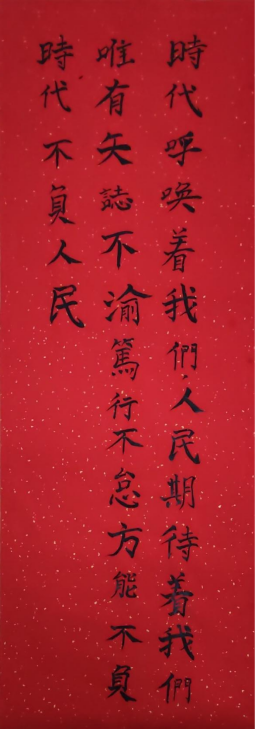 時代呼唤着我們人民期待着我們
唯有矢誌不渝篤行不怠方能不負
時代不負人民